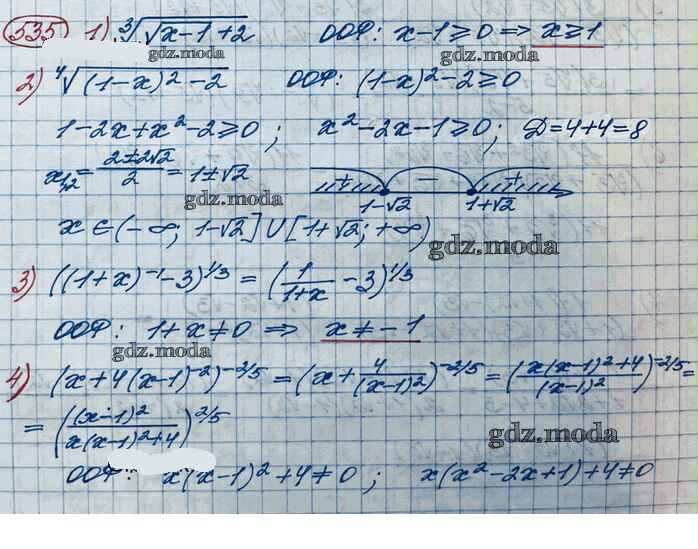 535 1) ∛(√(x-1)+2) ООФ: x-1≥0 ⇒ x≥1
gdz.moda gdz.moda
2) ⁴√((1-x)²-2) ООФ: (1-x)²-2≥0
1-2x+x²-2≥0; x²-2x-1≥0; Д=4+4=8
x₁,₂=(2±2√2)/2=1±√2 + - +
gdz.moda 1-√2 1+√2
x∈(-∞; 1-√2]∪[1+√2; +∞)
gdz.moda
3) ((1+x)⁻¹-3)^1/3 = (1/(1+x) -3)^1/3
ООФ: 1+x≠0 ⇒ x≠-1
gdz.moda
4) (x+4(x-1)⁻²)^-2/5 = (x+4/(x-1)²)^-2/5 = ((x(x-1)²+4)/(x-1)²)^-2/5 =
= ((x-1)²/(x(x-1)²+4))^2/5
gdz.moda
ООФ: x(x-1)²+4≠0; x(x²-2x+1)+4≠0